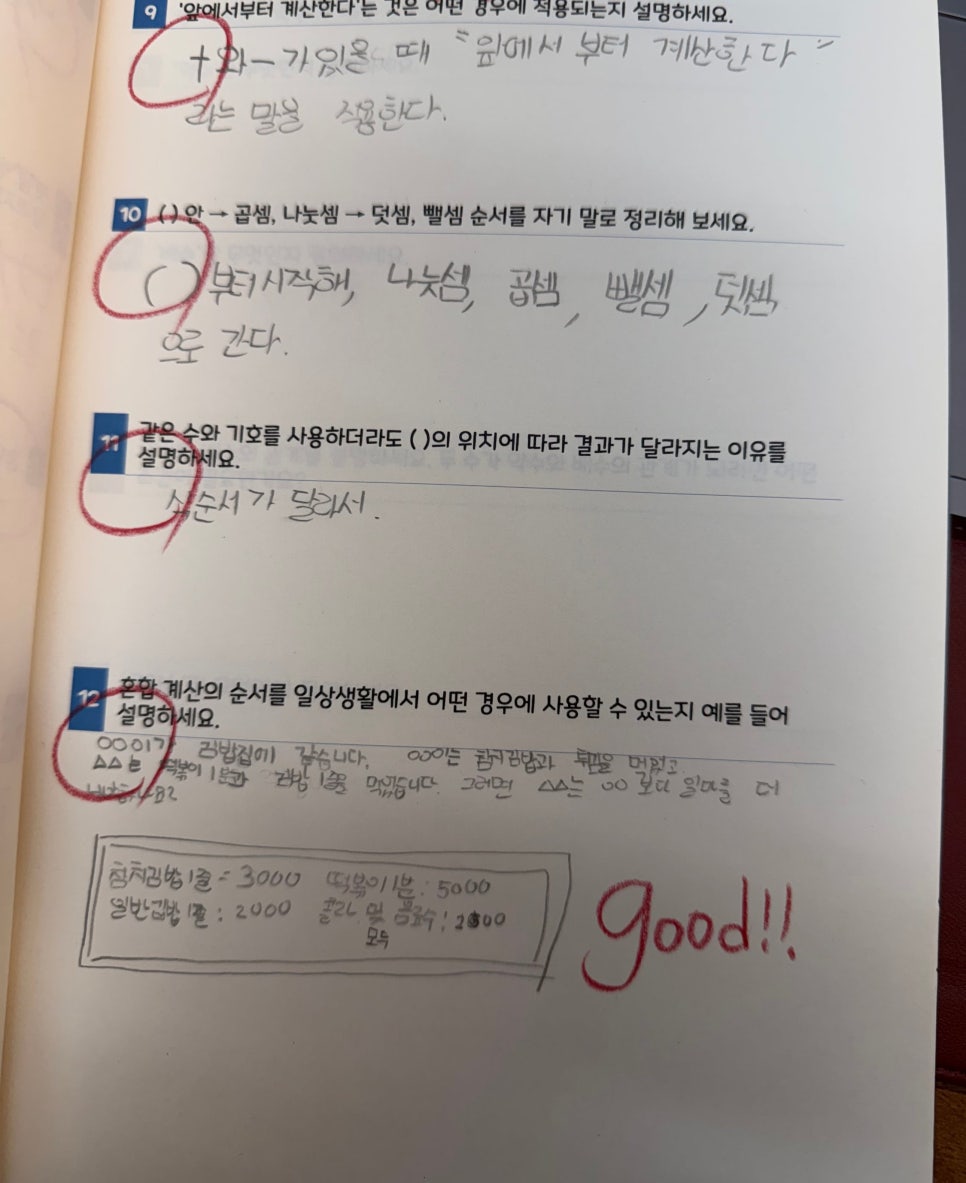 9 '앞에서부터 계산한다'는 것은 어떤 경우에 적용되는지 설명하세요.
+와 - 가 있을 때 "앞에서 부터 계산한다"
라는 말을 적용한다.
10 ( ) 안 → 곱셈, 나눗셈 → 덧셈, 뺄셈 순서를 자기 말로 정리해 보세요.
( )부터 시작해, 나눗셈, 곱셈, 뺄셈, 덧셈
으로 간다.
11 같은 수와 기호를 사용하더라도 ( )의 위치에 따라 결과가 달라지는 이유를
설명하세요.
순서가 달라서.
12 혼합 계산의 순서를 일상생활에서 어떤 경우에 사용할 수 있는지 예를 들어
설명하세요.
○○이가 김밥집에 갔습니다. ○○이는 참치김밥과 먹었고
△△는 떡볶이 1분과 김밥 1줄을 먹었습니다. 그러면 △△는 ○○ 보다 얼마를 더
참치김밥 1줄 = 3000 떡볶이 1분 : 5000
일반김밥 1줄 : 2000 콜라 및 음료수 :
모두
good!!